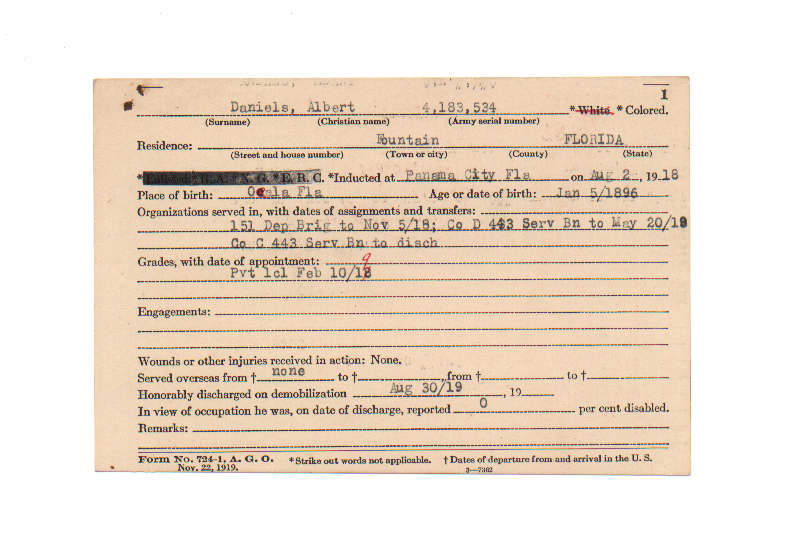 1
Daniels, Albert 4,183,534 *White. *Colored.
(Surname) (Christian name) (Army serial number)
Residence: Fountain FLORIDA
(Street and house number) (Town or city) (County) (State)
* N. G. *E. R. C. *Inducted at Panama City Fla on Aug 2, 1918
Place of birth: Ocala Fla Age or date of birth: Jan 5/1896
Organizations served in, with dates of assignments and transfers:
151 Dep Brig to Nov 5/18; Co D 443 Serv Bn to May 20/19
Co C 443 Serv Bn to disch
Grades, with date of appointment:
Pvt 1cl Feb 10/19
Engagements:
Wounds or other injuries received in action: None.
Served overseas from † none to † , from † to †
Honorably discharged on demobilization Aug 30/19, 19
In view of occupation he was, on date of discharge, reported 0 per cent disabled.
Remarks:
Form No. 724-1, A. G. O. *Strike out words not applicable. † Dates of departure from and arrival in the U. S.
Nov. 22, 1919. 3—7302